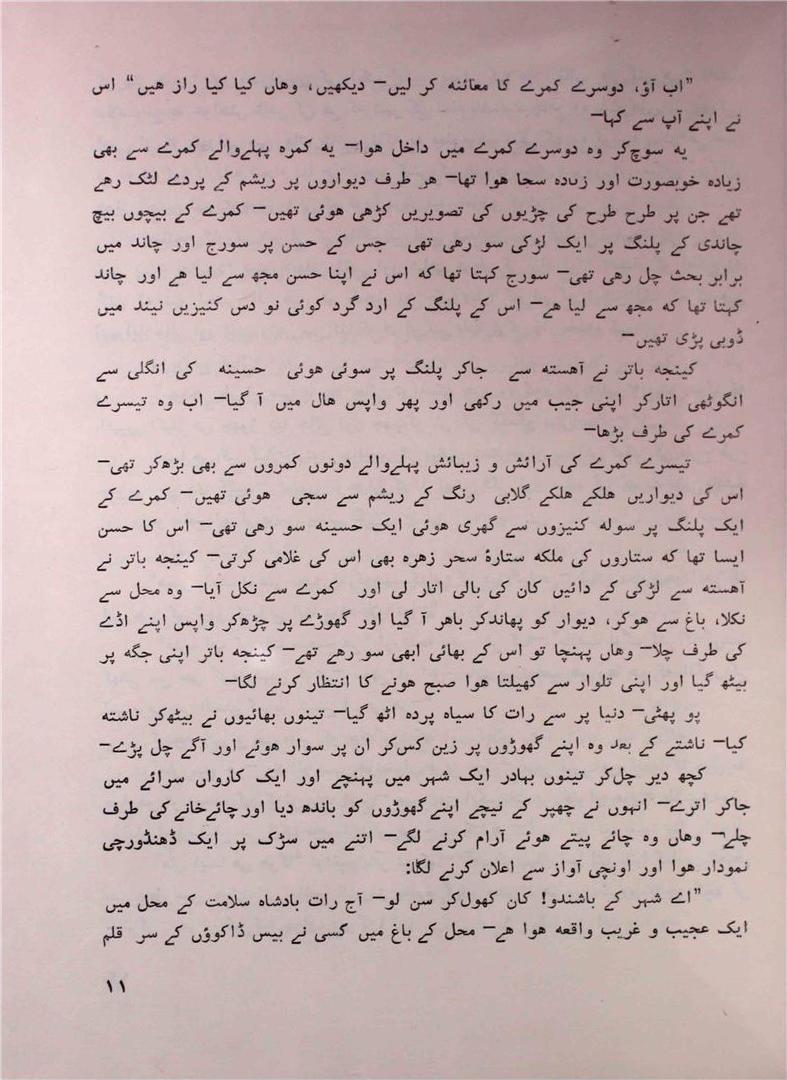 ”اب آؤ، دوسرے کمرے کا معائنہ کر لیں— دیکھیں، وھاں کیا کیا راز ھیں“ اس
نے اپنے آپ سے کہا—
یہ سوچ‌کر وہ دوسرے کمرے میں داخل ھوا— یہ کمرہ پہلےوالے کمرے سے بھی
زیادہ خوبصورت اور زیادہ سجا ھوا تھا— ھر طرف دیواروں پر ریشم کے پردے لٹک رھے
تھے جن پر طرح طرح کی چڑیوں کی تصویریں کڑھی ھوئی تھیں— کمرے کے بیچوں بیچ
چاندی کے پلنگ پر ایک لڑکی سو رھی تھی جس کے حسن پر سورج اور چاند میں
برابر بحث چل رھی تھی— سورج کہتا تھا کہ اس نے اپنا حسن مجھ سے لیا ھے اور چاند
کہتا تھا کہ مجھ سے لیا ھے— اس کے پلنگ کے ارد گرد کوئی نو دس کنیزیں نیند میں
ڈوبی پڑی تھیں—
کینجہ باتر نے آھستہ سے جاکر پلنگ پر سوئی ھوئی حسینہ کی انگلی سے
انگوٹھی اتارکر اپنی جیب میں رکھی اور پھر واپس ھال میں آ گیا— اب وہ تیسرے
کمرے کی طرف بڑھا—
تیسرے کمرے کی آرائش و زیبائش پہلےوالے دونوں کمروں سے بھی بڑھ‌کر تھی—
اس کی دیواریں ھلکے ھلکے گلابی رنگ کے ریشم سے سجی ھوئی تھیں— کمرے کے
ایک پلنگ پر سولہ کنیزوں سے گھری ھوئی ایک حسینہ سو رھی تھی— اس کا حسن
ایسا تھا کہ ستاروں کی ملکہ ستارۂ سحر زھرہ بھی اس کی غلامی کرتی— کینجہ باتر نے
آھستہ سے لڑکی کے دائیں کان کی بالی اتار لی اور کمرے سے نکل آیا— وہ محل سے
نکلا، باغ سے ھوکر، دیوار کو پھاندکر باھر آ گیا اور گھوڑے پر چڑھ‌کر واپس اپنے اڈے
کی طرف چلا— وھاں پہنچا تو اس کے بھائی ابھی سو رھے تھے— کینجہ باتر اپنی جگہ پر
بیٹھ گیا اور اپنی تلوار سے کھیلتا ھوا صبح ھونے کا انتظار کرنے لگا—
پو پھٹی— دنیا پر سے رات کا سیاہ پردہ اٹھ گیا— تینوں بھائیوں نے بیٹھ‌کر ناشتہ
کیا— ناشتے کے بعد وہ اپنے گھوڑوں پر زین کس‌کر ان پر سوار ھوئے اور آگے چل پڑے—
کچھ دیر چل‌کر تینوں بہادر ایک شہر میں پہنچے اور ایک کارواں سرائے میں
جاکر اترے— انہوں نے چھپر کے نیچے اپنے گھوڑوں کو باندھ دیا اور چائےخانے کی طرف
چلے— وھاں وہ چائے پیتے ھوئے آرام کرنے لگے— اتنے میں سڑک پر ایک ڈھنڈورچی
نمودار ھوا اور اونچی آواز سے اعلان کرنے لگا:
”اے شہر کے باشندو! کان کھول‌کر سن لو— آج رات بادشاہ سلامت کے محل میں
ایک عجیب و غریب واقعہ ھوا ھے— محل کے باغ میں کسی نے بیس ڈاکوؤں کے سر قلم
۱۱